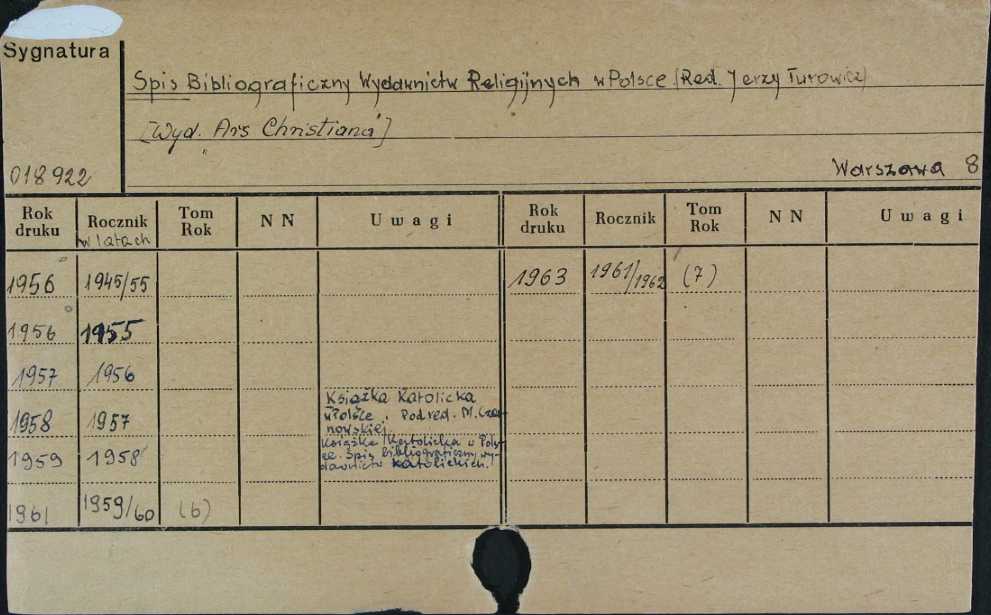 Sygnatura
Spis Bibliograficzny Wydawnictw Religijnych w Polsce (Red. Jerzy Turowicz)
[Wyd. Ars Christiana]
018922
Warszawa 8
Rok druku Rocznik w latach Tom Rok NN Uwagi Rok druku Rocznik Tom Rok NN Uwagi
1956 1945/55 1963 1961/1962 (7)
1956 1955
1957 1956
Książka Katolicka
w Polsce. Pod red. M. Czar-
1958 1957
nowskiej
Książka Katolicka w Pols-
ce. Spis bibliograficzny wy-
1959 1958
dawnictw katolickich.
1961 1959/60 (6)